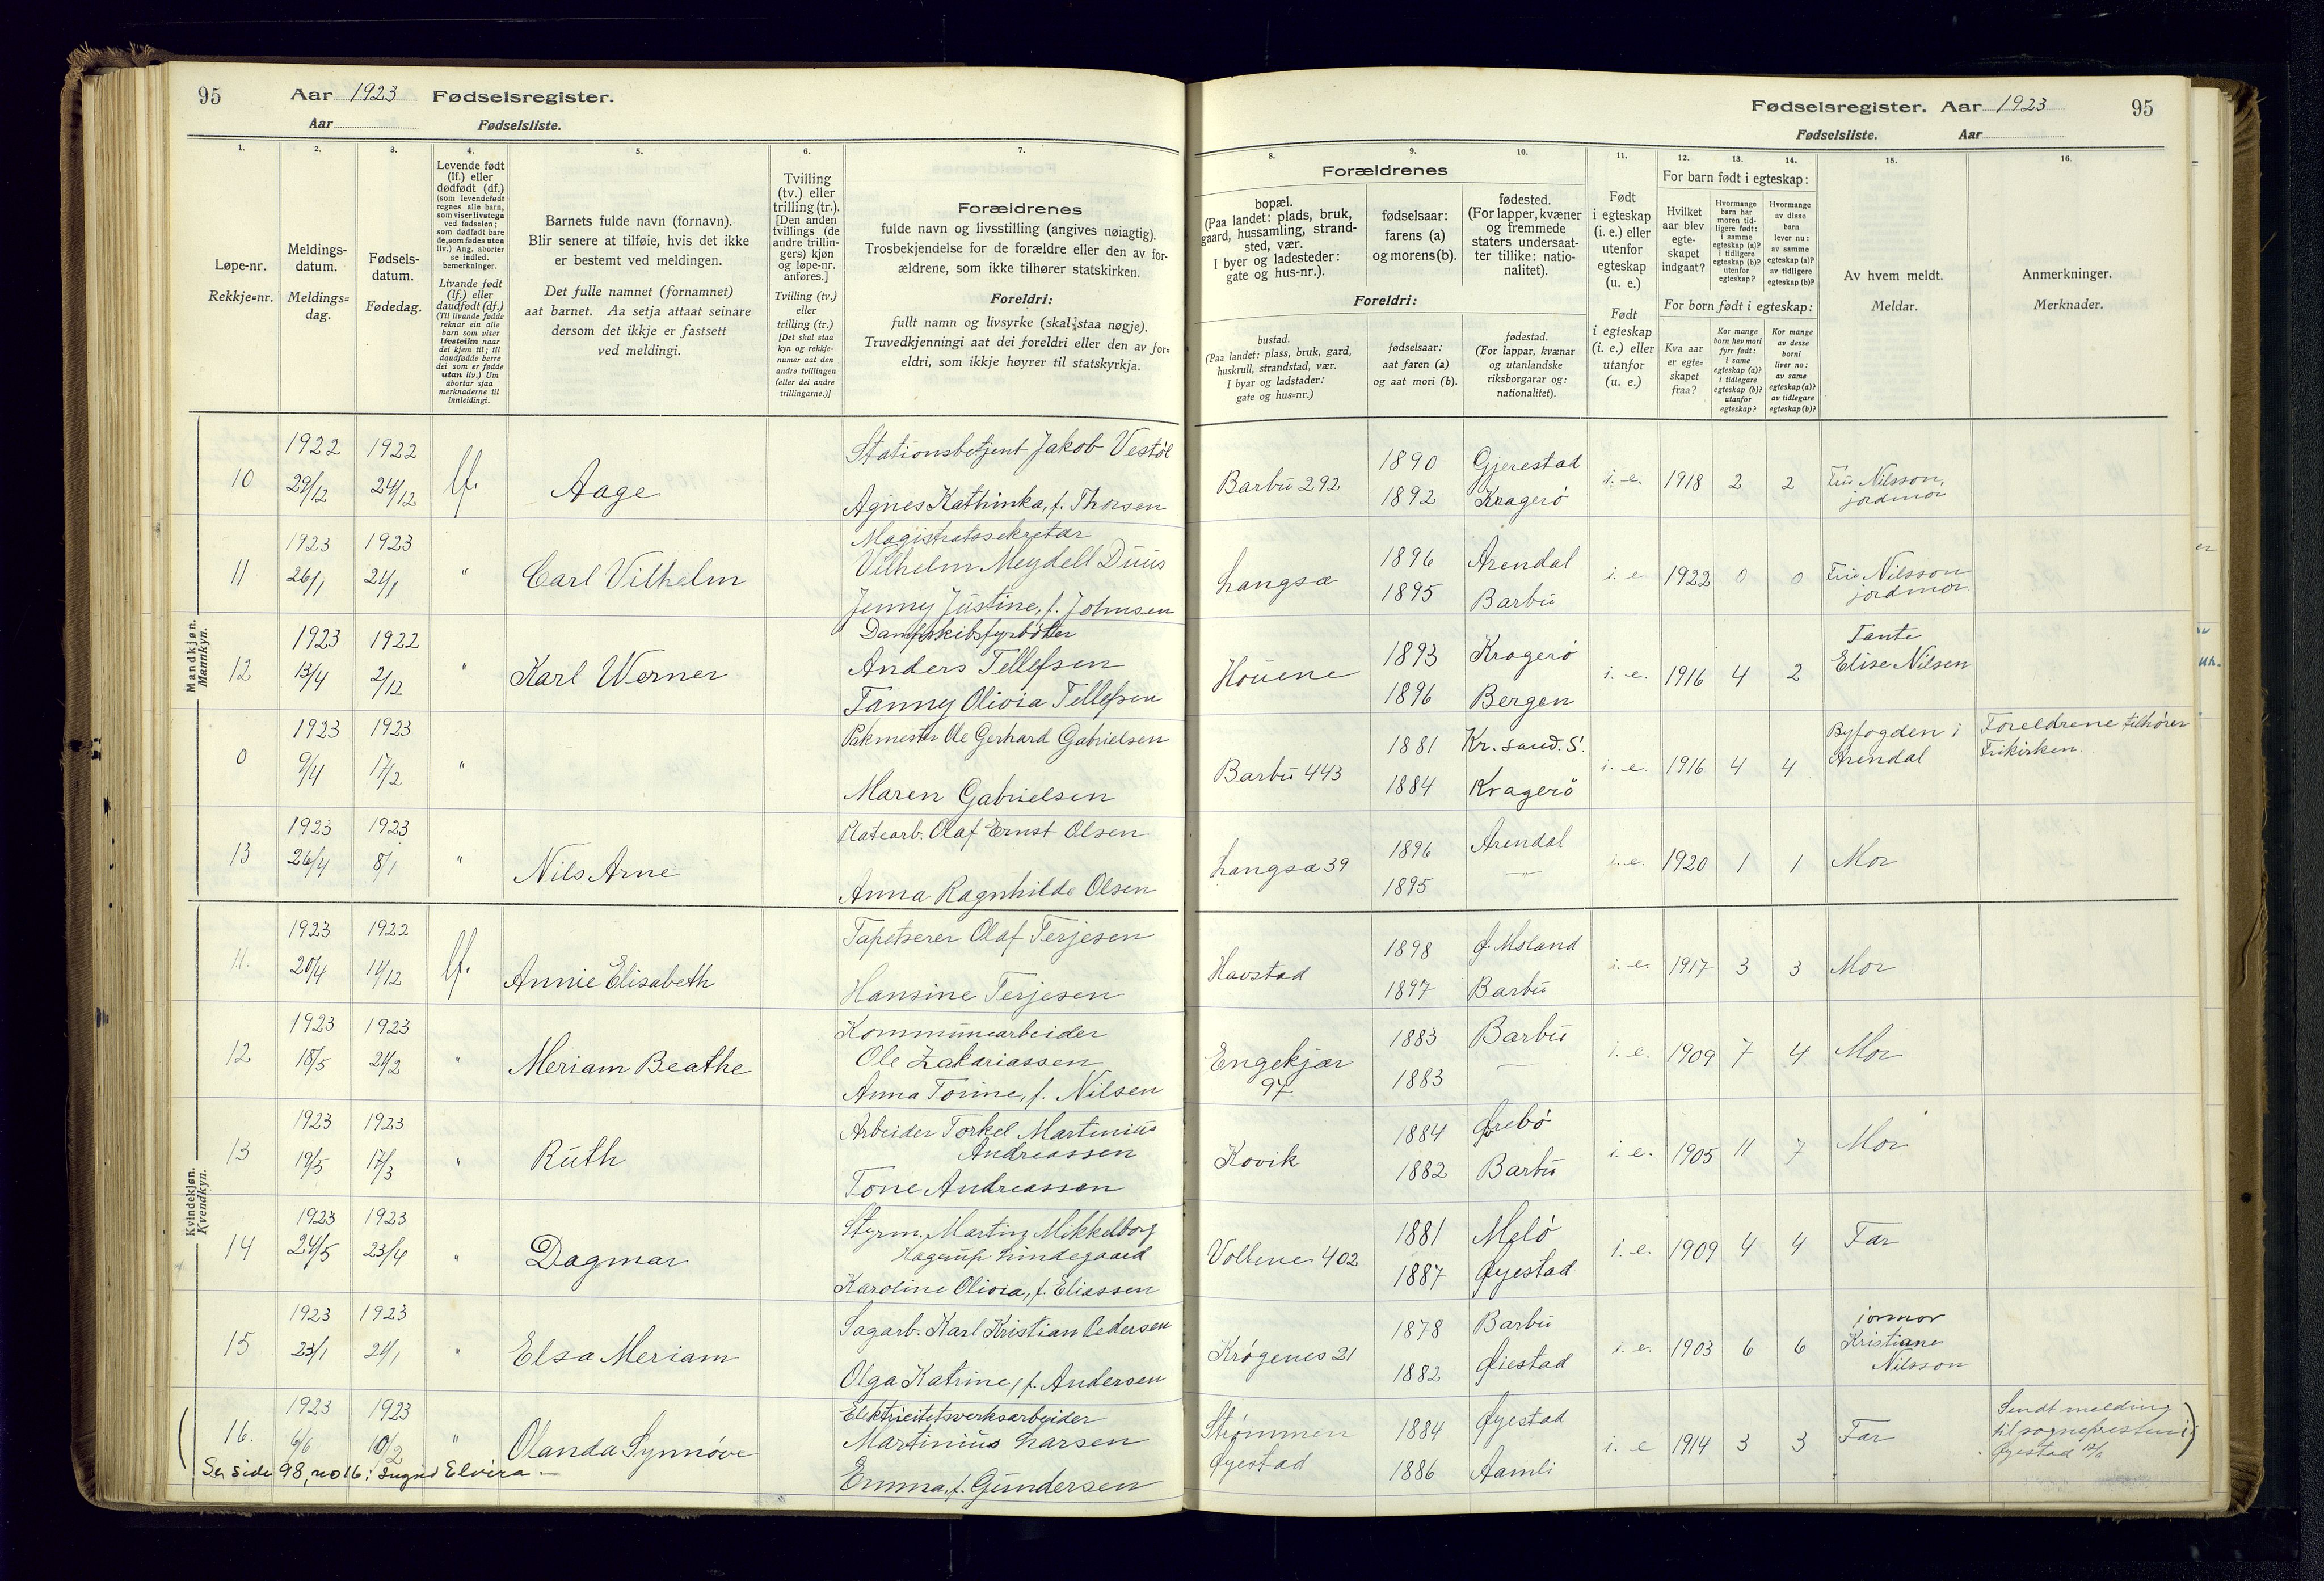 95 Aar 1923 Fødselsregister.
Aar Fødselsliste.
Fødselsregister. Aar 1923 95
Fødselsliste. Aar
1. 2. 3. 4. 5. 6. 7.
Løpe-nr.
Rekkje=nr.
Meldings-
datum.
Meldings=
dag.
Fødsels-
datum.
Fødedag.
Levende født
(lf.) eller
dødfødt (df.)
(som levendefødt
regnes alle barn,
som viser livstegn
ved fødselen;
som dødfødt bare
de, som fødes uten
liv.) Ang. aborter
se indled.
bemerkninger.
Livande født
(lf.) eller
daudfødt (df.)
(Til livande fødde
reknar ein alle
barn som viser
livsteikn naar
dei kjem til; til
daudfødde berre
dei som er fødde
utan liv.) Um
abortar sjaa
merknaderne til
innleidingi.
Barnets fulde navn (fornavn).
Blir senere at tilføie, hvis det ikke
er bestemt ved meldingen.
Det fulle namnet (fornamnet)
aat barnet. Aa setja attaat seinare
dersom det ikkje er fastsett
ved meldingi.
Tvilling
(tv.) eller
trilling (tr.).
[Den anden
tvillings (de
andre trillin-
gers) kjøn
og løpe-nr.
anføres.]
Tvilling (tv.)
eller
trilling (tr.)
[Det skal staa
kyn og rekkje-
numer aat den
andre tvillingen
(eller dei andre
trillingarne.)]
Forældrenes
fulde navn og livsstilling (angives nøiagtig).
Trosbekjendelse for de forældre eller den av for-
ældrene, som ikke tilhører statskirken.
Foreldri:
fullt namn og livsyrke (skal staa nøgje).
Truvedkjenningi aat dei foreldri eller den av for=
eldri, som ikkje høyrer til statskyrkja.
8. 9. 10. 11. 12. 13. 14. 15. 16.
Forældrenes
bopæl.
(Paa landet: plads, bruk,
gaard, hussamling, strand-
sted, vær.
I byer og ladesteder:
gate og hus-nr.).
fødselsaar:
farens (a)
og morens (b).
fødested.
(For lapper, kvæner
og fremmede
staters undersaat-
ter tillike: natio-
nalitet).
Foreldri:
bustad.
(Paa landet: plass, bruk, gard,
huskrull, strandstad, vær.
I byar og ladstader:
gate og hus=nr.)
fødselsaar:
aat faren (a)
og aat mori (b).
fødestad.
(For lappar, kvænar
og utanlandske
riksborgarar og:
nationalitet).
Født
i egteskap
(i. e.) eller
utenfor
egteskap
(u. e.)
Født
i egteskap
(i. e.) eller
utanfor
(u. e.)
For barn født i egteskap:
Hvilket
aar blev
egte-
skapet
indgaat?
Hvormange
barn har
moren tid-
ligere født:
i samme
egteskap (a)?
i tidligere
egteskap (b)?
utenfor
egteskap?
Hvormange
av disse
barn
lever nu:
av samme
egteskap (a)?
av tidligere
egteskap (b)?
For born født i egteskap:
Kva aar
er egte-
skapet
fraa?
Kor mange
born hev mori
fyrr født:
i same
egteskap (a)?
i tidlegare
egteskap (b)?
utanfor
egteskap?
Kor mange
av desse
borni
liver no:
av same
egteskap (a)?
av tidlegare
egteskap (b)?
Av hvem meldt.
Meldar.
Anmerkninger.
Merknader.
Mandkjøn.
Mannkyn.
10 1922 29/12 1922 24/12 lf. Aage
Stationsbetjent Jakob Vestøl
Agnes Kathinka, f. Thorsen
Barbu 292 1890 Gjerestad
1892 Kragerö
i. e. 1918 2 2 Fru Nilsson,
jordmor
11 1923 26/1 1923 21/1 " Carl Vilhelm
Magistratssekretær
Vilhelm Meydell Duus
Jenny Justine, f. Johnsen
Langsæ 1896 Arendal
1895 Barbu
i. e. 1922 0 0 Fru Nilsson
jordmor
12 1923 13/4 1922 2/12 " Karl Werner
Dampskibsfyrbøter
Anders Tellefsen
Fanny Olivia Tellefsen
Houene 1893 Kragerö
1896 Bergen
i. e. 1916 4 2 Tante
Elise Nilsen
0 1923 9/4 1923 17/2 "
Pakmester Ole Gerhard Gabrielsen
Maren Gabrielsen
Barbu 443 1881 Kr. sand. S.
1884 Kragerö
i. e. 1916 4 4 Byfogden i
Arendal
Foreldrene tilhører
Frikirken.
13 1923 26/4 1923 8/1 " Nils Arne
Platearb. Olaf Ernst Olsen
Anna Ragnhilde Olsen
Langsæ 39 1896 Arendal
1895 —"—
i. e. 1920 1 1 Mor
Kvindekjøn.
Kvendkyn.
11. 1923 20/4 1922 11/12 lf. Annie Elisabeth
Tapetserer Olaf Terjesen
Hansine Terjesen
Havstad 1898 Ø. Moland
1897 Barbu
i. e. 1917 3 3 Mor
12 1923 18/5 1923 21/2 " Meriam Beathe
Kommunearbeider
Ole Zakariassen
Anna Torine, f. Nilsen
Engekjær
97
1883 Barbu
1883 —
i. e. 1909 7 4 Mor
13 1923 19/5 1923 17/3 " Ruth
Arbeider Torkel Martinius
Andreassen
Tone Andreassen
Kovik 1884 Grebö
1882 Barbu
i. e. 1905 11 7 Mor
14 1923 24/5 1923 23/4 " Dagmar
Styrm. Martin Mikkelborg
Hagerup Lindegaard
Karoline Olivia, f. Eliassen
Vollene 402 1881 Melö
1887 Øyestad
i. e. 1909 4 4 Far
15 1923 23/1 1923 21/1 " Elsa Meriam
Sagarb. Karl Kristian Pedersen
Olga Katrine, f. Andersen
Krøgenes 21 1878 Barbu
1882 Øiestad
i. e. 1903 6 6 jormor
Kristiane
Nilsson
16. 1923 6/6 1923 10/2 " Olanda Synnöve
Elektricitetsverksarbeider
Martinius Larsen
Emma, f. Gundersen
Strømmen
Øyestad
1884 Øyestad
1886 Aamli
i. e 1914 3 3 Far
Sendt melding
til sognepresten i
Øyestad 12/6
Se side 98, no 16: Ingrid Elvira.